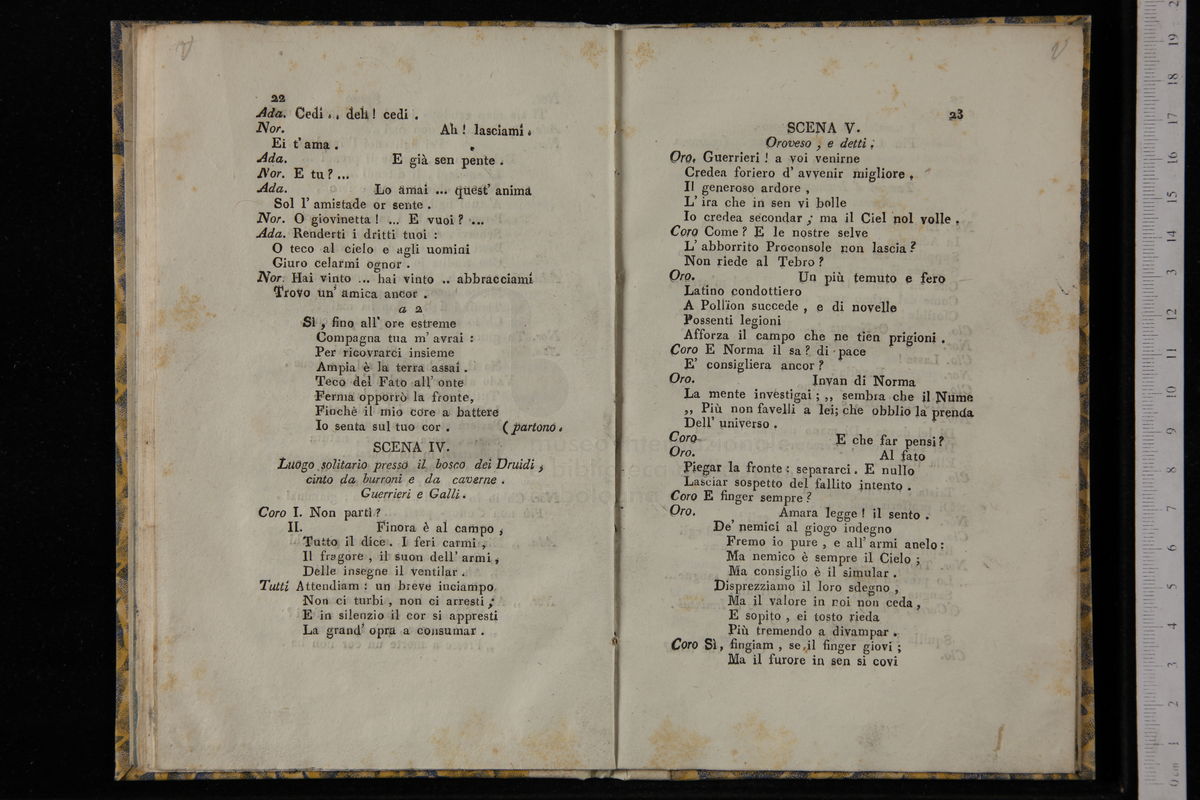 22
Ada. Cedi... deh! cedi.
Nor. Ah! lasciami.
Ei t'ama.
Ada. E già sen pente.
Nor. E tu?...
Ada. Lo amai ... quest' anima
Sol l' amistade or sente.
Nor. O giovinetta! ... E vuoi? ...
Ada. Renderti i dritti tuoi:
O teco al cielo e agli uomini
Giuro celarmi ognor.
Nor. Hai vinto ... hai vinto .. abbracciami
Trovo un' amica ancor.
a 2
Sì, fino all' ore estreme
Compagna tua m' avrai:
Per ricovrarci insieme
Ampia è la terra assai.
Teco del Fato all' onte
Ferma opporrò la fronte,
Finchè il mio core a battere
Io senta sul tuo cor. (partono.
SCENA IV.
Luogo solitario presso il bosco dei Druidi,
cinto da burroni e da caverne.
Guerrieri e Galli.
Coro I. Non partì?
II. Finora è al campo,
Tutto il dice. I feri carmi,
Il fragore, il suon dell' armi,
Delle insegne il ventilar.
Tutti Attendiam: un breve inciampo
Non ci turbi, non ci arresti;
E in silenzio il cor si appresti
La grand' opra a consumar.
23
SCENA V.
Oroveso, e detti.
Oro. Guerrieri! a voi venirne
Credea foriero d' avvenir migliore,
Il generoso ardore,
L' ira che in sen vi bolle
Io credea secondar; ma il Ciel nol volle.
Coro Come? E le nostre selve
L' abborrito Proconsole non lascia?
Non riede al Tebro?
Oro. Un più temuto e fero
Latino condottiero
A Pollïon succede, e di novelle
Possenti legioni
Afforza il campo che ne tien prigioni.
Coro E Norma il sa? di pace
E' consigliera ancor?
Oro. Invan di Norma
La mente investigai; ,, sembra che il Nume
,, Più non favelli a lei; che obblio la prenda
Dell' universo.
Coro E che far pensi?
Oro. Al fato
Piegar la fronte: separarci. E nullo
Lasciar sospetto del fallito intento.
Coro E finger sempre?
Oro. Amara legge! il sento.
De' nemici al giogo indegno
Fremo io pure, e all' armi anelo:
Ma nemico è sempre il Cielo;
Ma consiglio è il simular.
Disprezziamo il loro sdegno,
Ma il valore in noi non ceda,
E sopito, ei tosto rieda
Più tremendo a divampar.
Coro Sì, fingiam, se il finger giovi;
Ma il furore in sen si covi